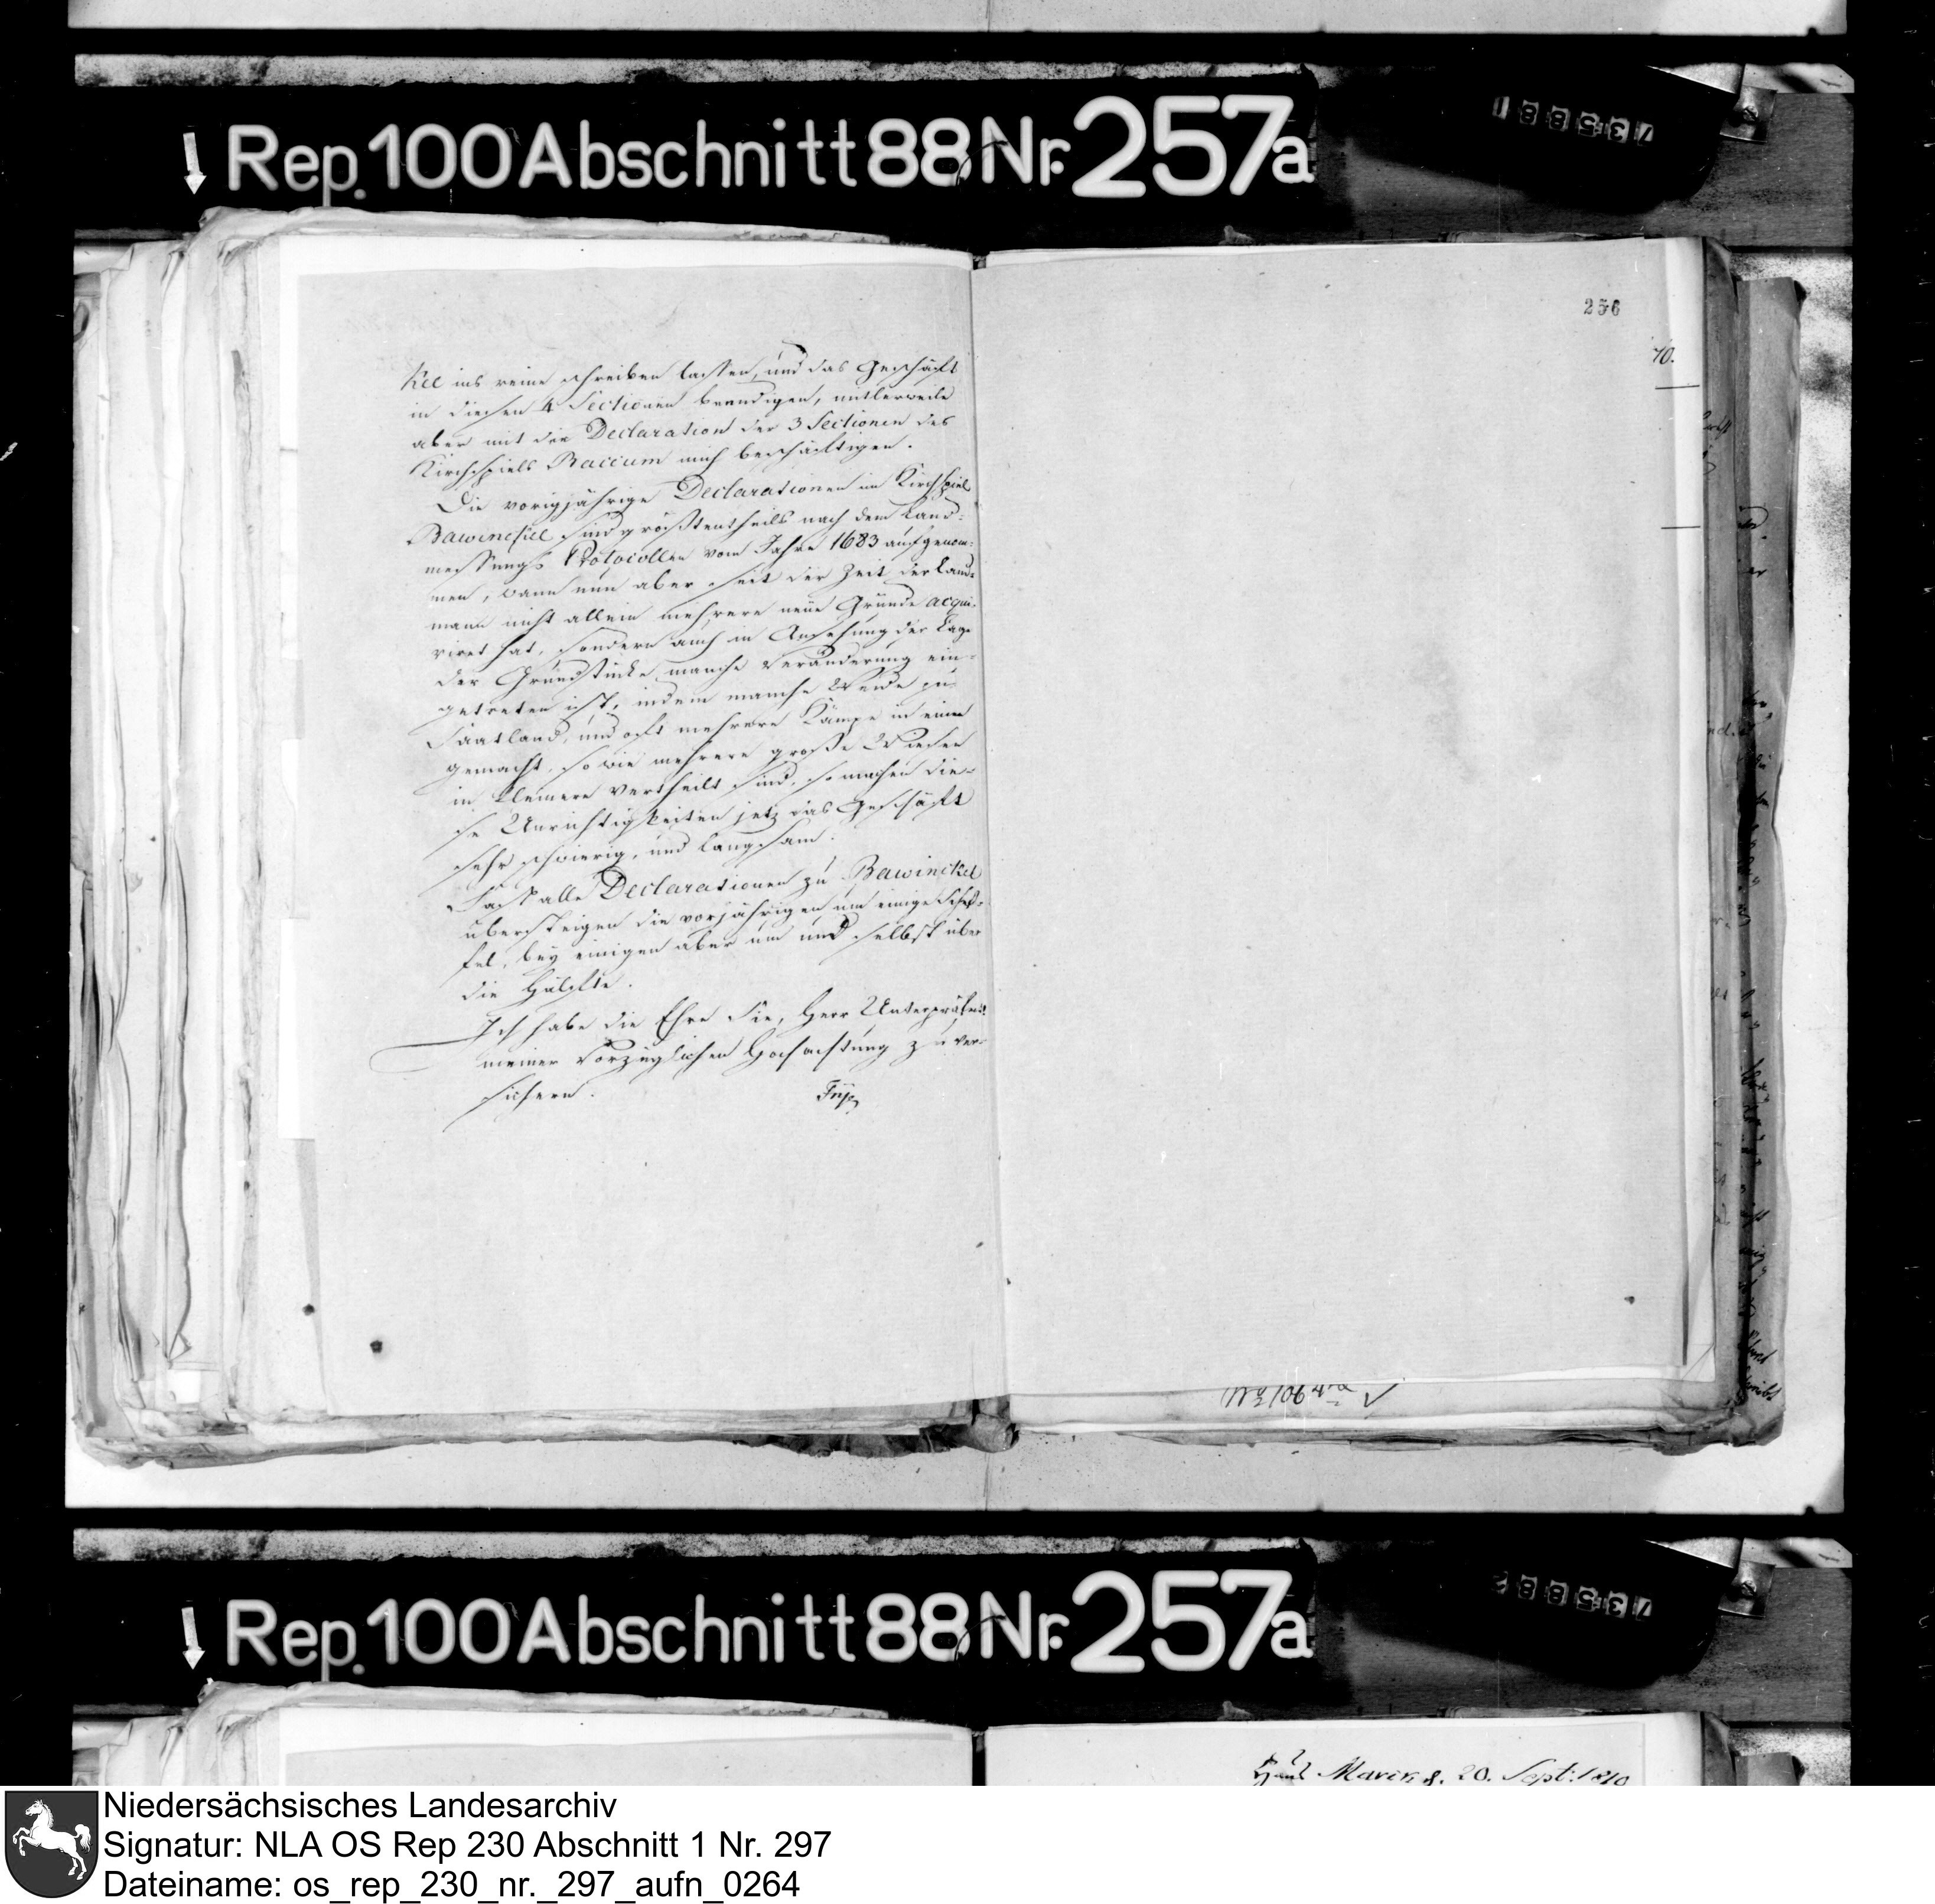 Rep. 100 Abschnitt 88 Nr. 257a
735881
256
70.
kel ins reine schreiben lassen, und das Geschäft
in diesen 4 Sectionen beendigen, mitlerweile
aber mit die Declaration der 3 Sectionen des
Kirchspiels Baccum mich beschäftigen.
Die vorigjährige Declarationen im Kirchspiel
Bawinckel sind größtentheils nach dem Land-
messungs Protocollen vom Jahre 1683 aufgenom-
men, wann nun aber seit der Zeit der Land-
mann nicht allein mehrere neue Gründe acqui-
riret hat, sondern auch in Ansehung der Lage
der Grundstücke manche Veränderung ein-
getreten ist, indem manche Weide zu
Saatland, und oft mehrere Kämpe in einen
gemacht, so wie mehrere große Wiesen
in kleinere vertheilt sind, so machen die-
se Unrichtigkeiten jetz das Geschäft
sehr schwierig, und langsam.
Fast alle Declarationen zu Bawinckel
übersteigen die vorjährigen um einige Schef-
fel, bey einigen aber um und selbst über
die Hälfte.
Ich habe die Ehre Sie, Herr Unterpräfect
meiner vorzüglichen Hochachtung zu ver-
sichern.
Rep. 100 Abschnitt 88 Nr. 257a
735882
20. Sept. 1810
Niedersächsisches Landesarchiv
Signatur: NLA OS Rep 230 Abschnitt 1 Nr. 297
Dateiname: os_rep_230_nr._297_aufn_0264